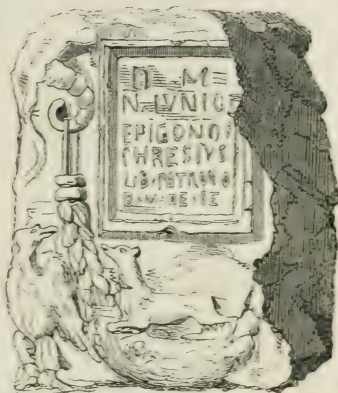 D M
N IVNIO
EPIGONO
CHRESIVS
LIB PATRONO
B M DE SE